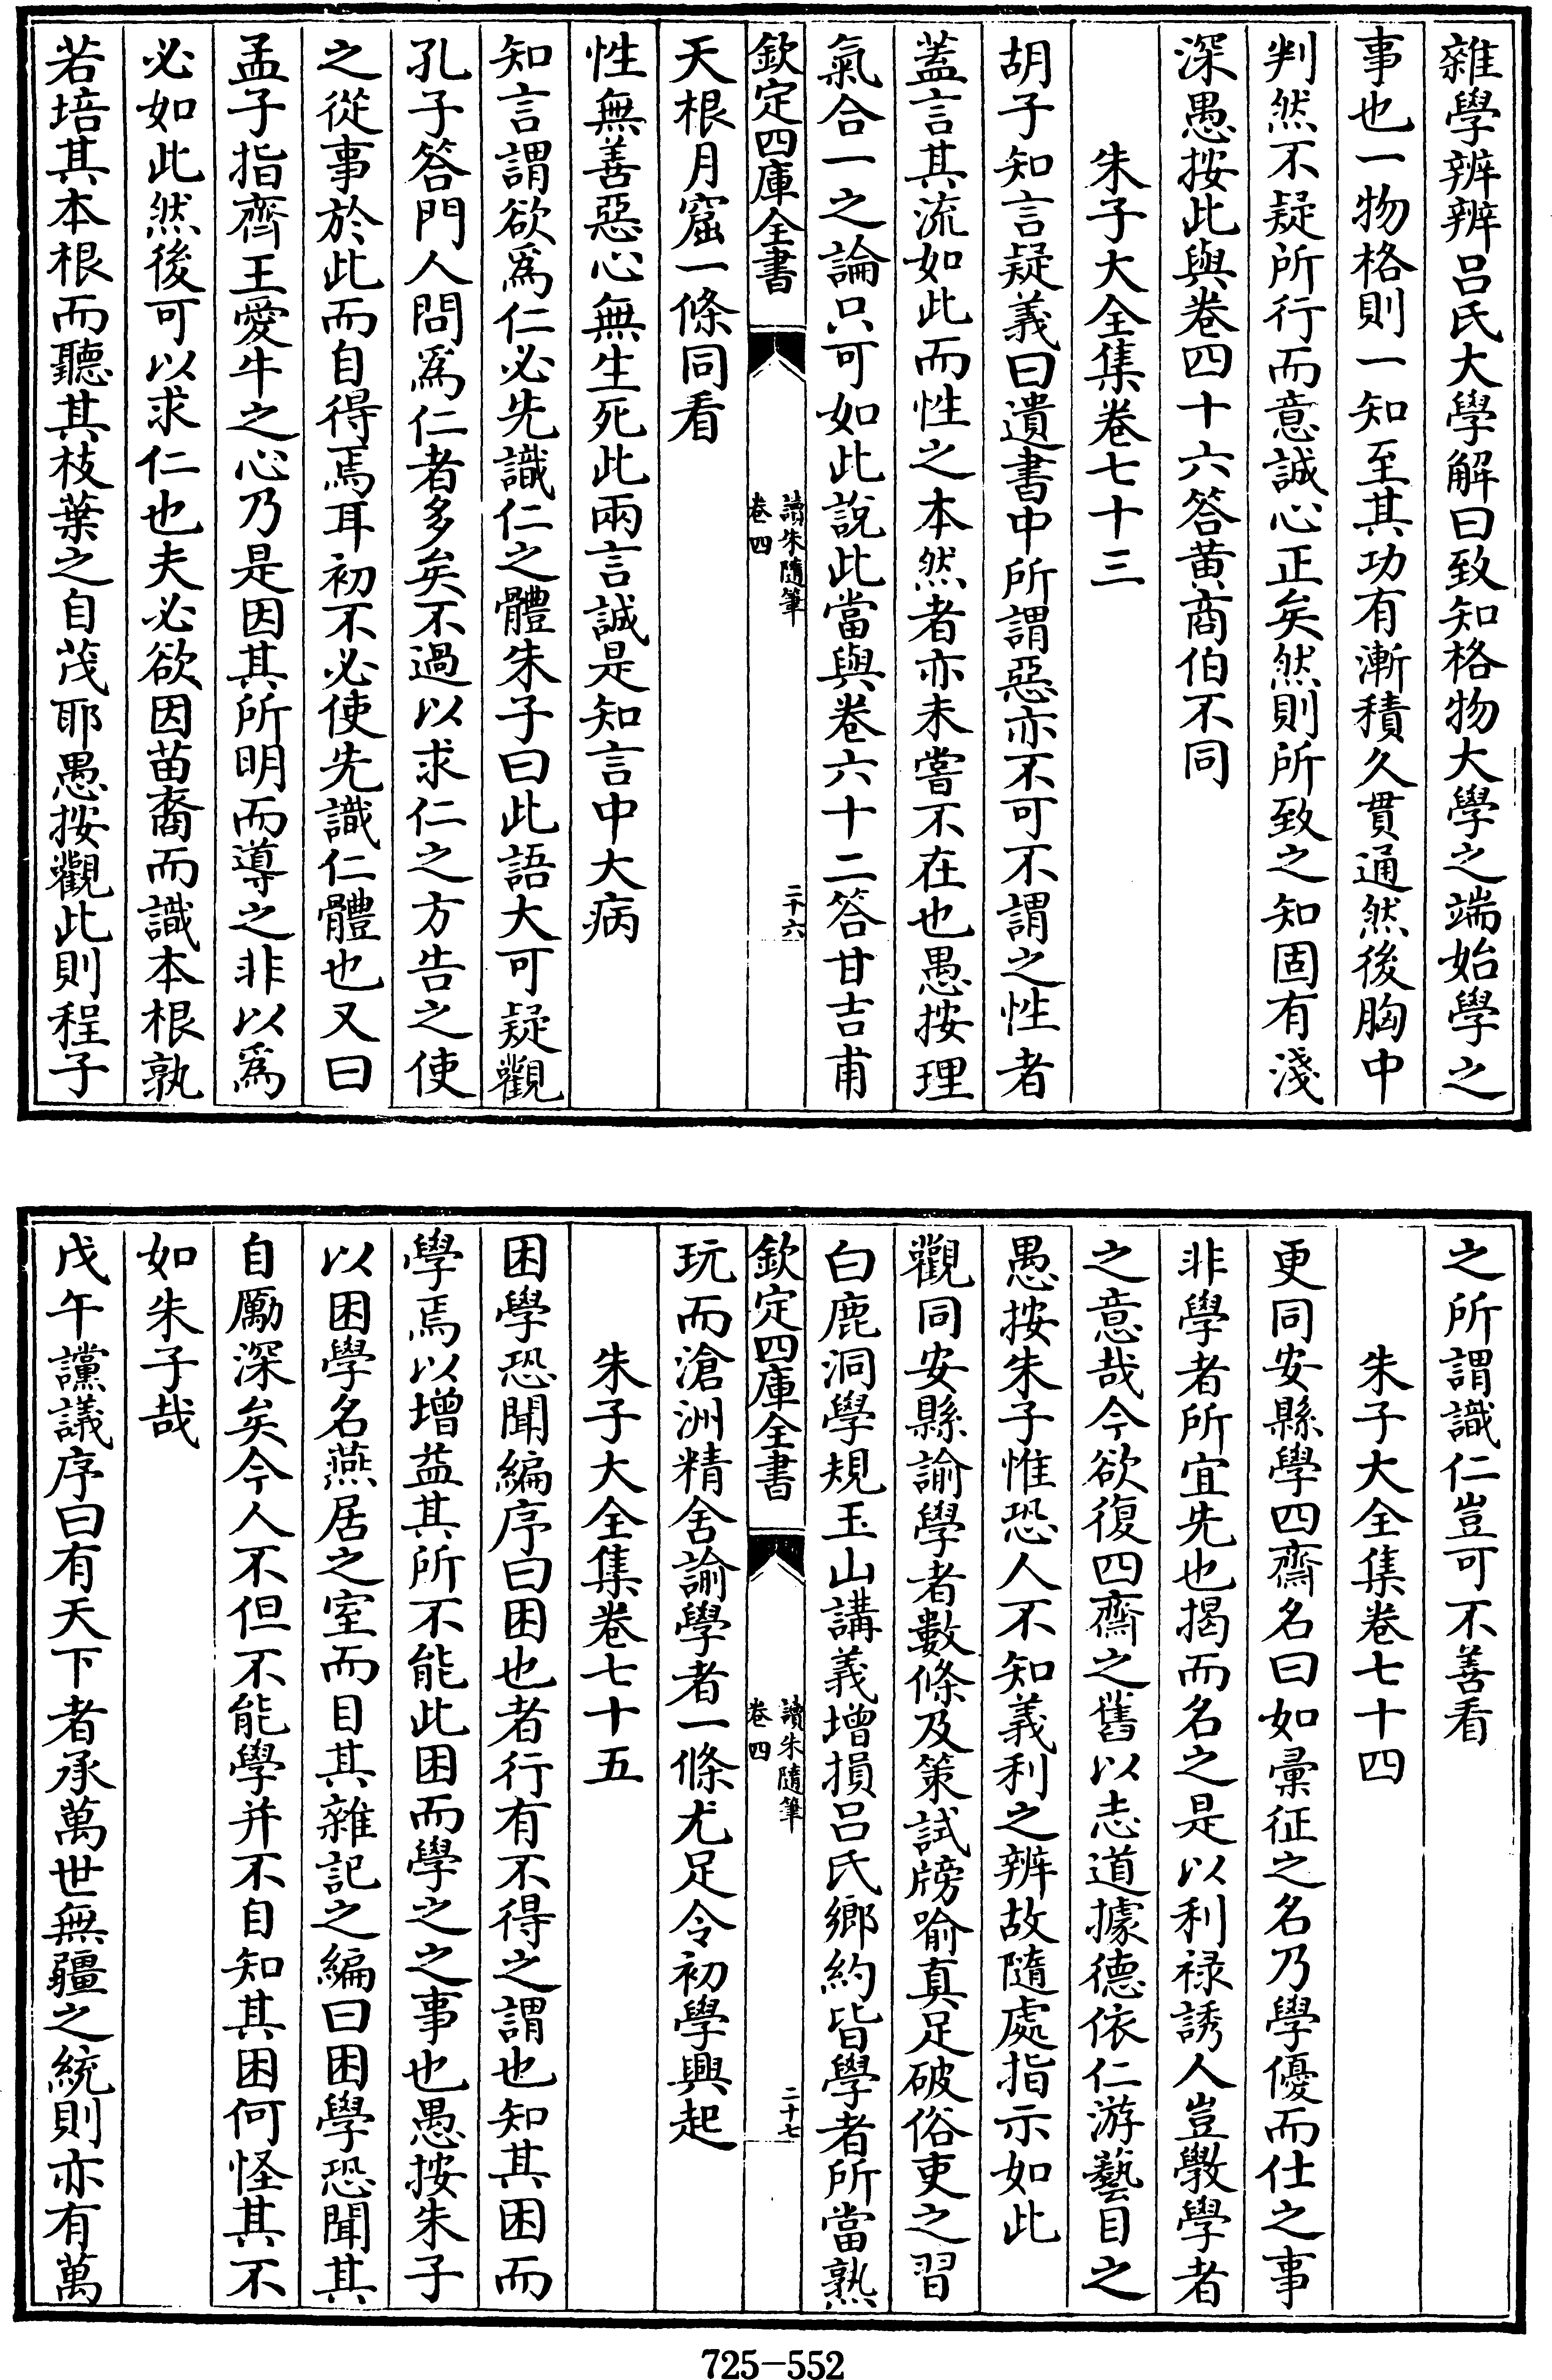 雜學辨辨呂氏大學解曰致知格物大學之端始學之
事也一物格則一知至其功有漸積久貫通然後胸中
判然不疑所行而意誠心正矣然則所致之知固有淺
深愚按此與卷四十六答黄商伯不同
朱子大全集卷七十三
胡子知言疑義曰遺書中所謂惡亦不可不謂之性者
蓋言其流如此而性之本然者亦未嘗不在也愚按理
氣合一之論只可如此說此當與卷六十二答甘吉甫
欽定四庫全書
讀朱隨筆
卷四
二十六
天根月窟一條同看
性無善惡心無生死此兩言誠是知言中大病
知言謂欲為仁必先識仁之體朱子曰此語大可疑觀
孔子答門人問為仁者多矣不過以求仁之方告之使
之從事於此而自得焉耳初不必使先識仁體也又曰
孟子指齊王愛牛之心乃是因其所明而導之非以為
必如此然後可以求仁也夫必欲因苗裔而識本根孰
若培其本根而聽其枝葉之自茂耶愚按觀此則程子
之所謂識仁豈可不善看
朱子大全集卷七十四
更同安縣學四齋名曰如彙征之名乃學優而仕之事
非學者所宜先也揭而名之是以利祿誘人豈斆學者
之意哉今欲復四齋之舊以志道據德依仁游藝目之
愚按朱子惟恐人不知義利之辨故隨處指示如此
觀同安縣諭學者數條及策試牓喻真足破俗吏之習
白鹿洞學規玉山講義增損呂氏鄉約皆學者所當熟
欽定四庫全書
讀朱隨筆
卷四
二十七
玩而滄洲精舍諭學者一條尤足令初學興起
朱子大全集卷七十五
困學恐聞編序曰困也者行有不得之謂也知其困而
學焉以增益其所不能此困而學之之事也愚按朱子
以困學名燕居之室而目其雜記之編曰困學恐聞其
自勵深矣今人不但不能學并不自知其困何怪其不
如朱子哉
戊午讜議序曰有天下者承萬世無疆之統則亦有萬
725-552